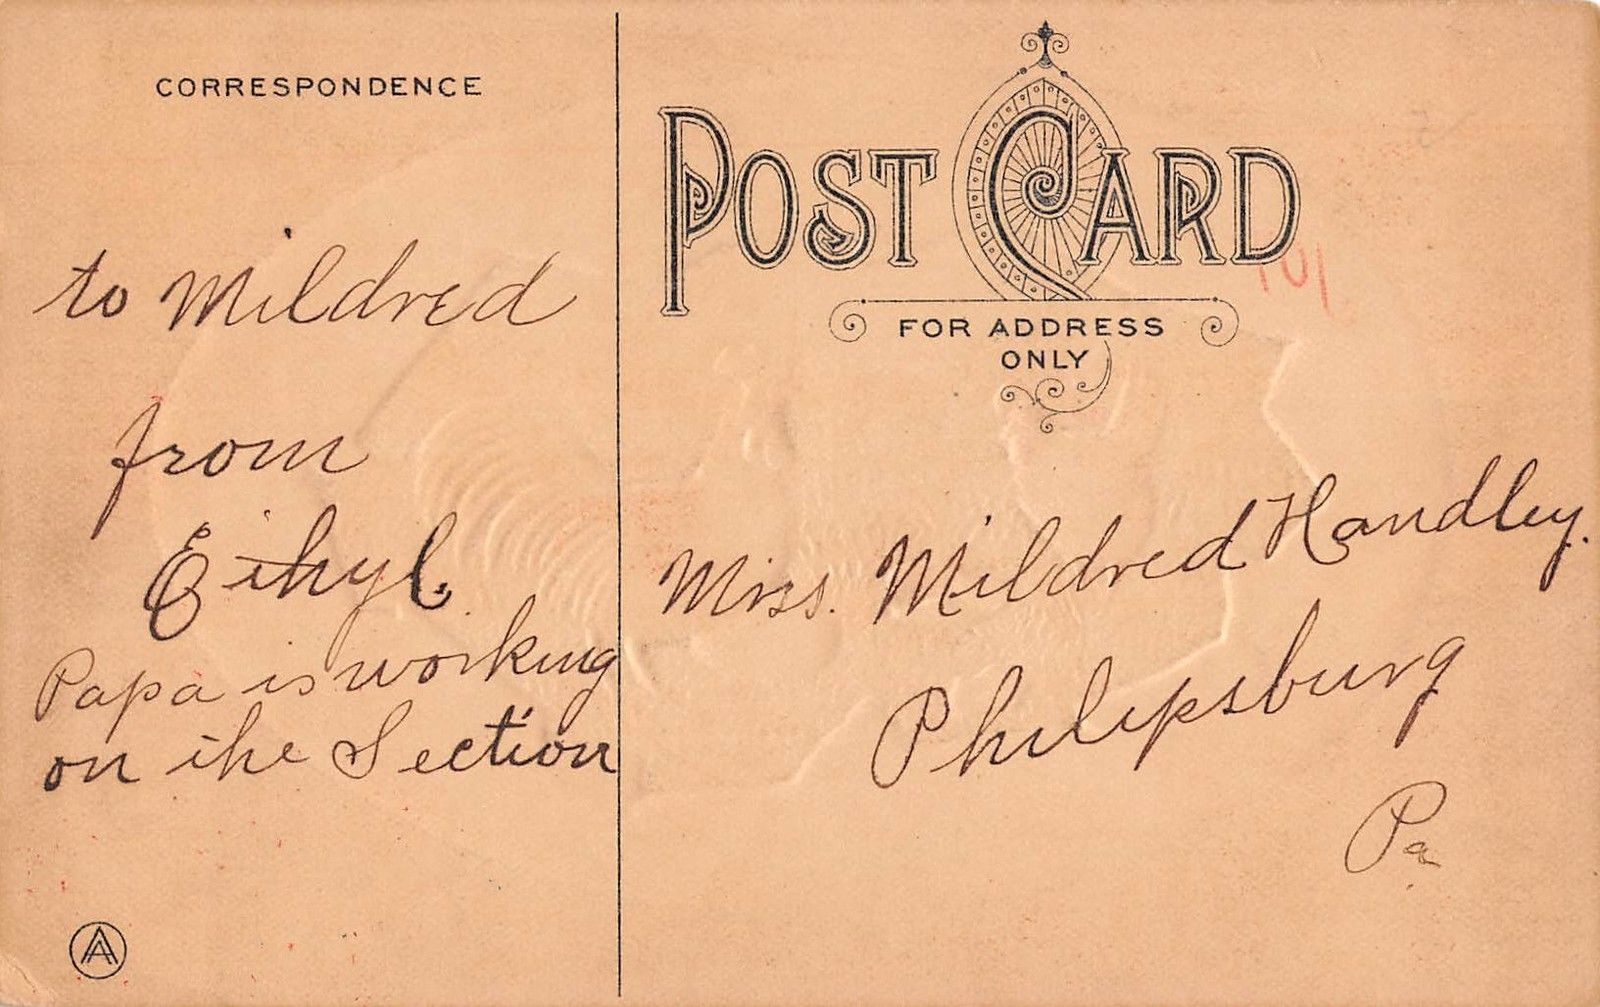 CORRESPONDENCE
to Mildred
from
Ethyl.
Papa is working
on the Section
POST CARD
FOR ADDRESS
ONLY
101
Miss. Mildred Handley.
Philipsburg
Pa